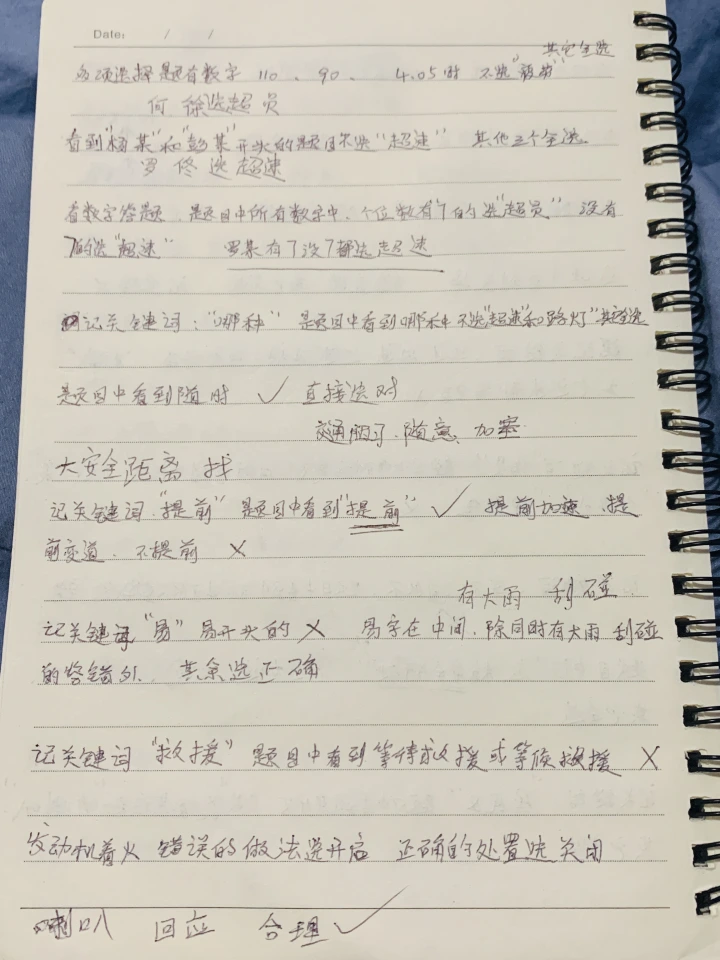 Date: / /
其它全选
多项选择题有数字 110、90、4.05时 不选"疲劳"
何、徐选超员
看到"杨某"和"彭某"开头的题目不选"超速" 其他三个全选
罗 佟 选 超速
看数字答题、题目中所有数字中、个位数有7的选"超员" 没有
7的选"超速" 罗某有7没7都选超速
记关键词："哪种" 题目中看到哪种不选"超速"和"路灯"其它全选
题目中看到随时 ✓ 直接选对
交通 随意、加
大安全距离 找
记关键词."提前" 题目中看到"提前" ✓ 提前加速、提
前变道、不提前 ×
有大雨 刮碰
记关键词"易" 易开头的 × 易字在中间.除同时有大雨 刮碰
的答错外. 其余选正确
记关键词"救援" 题目中看到等待救援或等候救援 ×
发动机着火 错误的做法选开启 正确的处置选关闭
喇叭 回应 合理 ✓